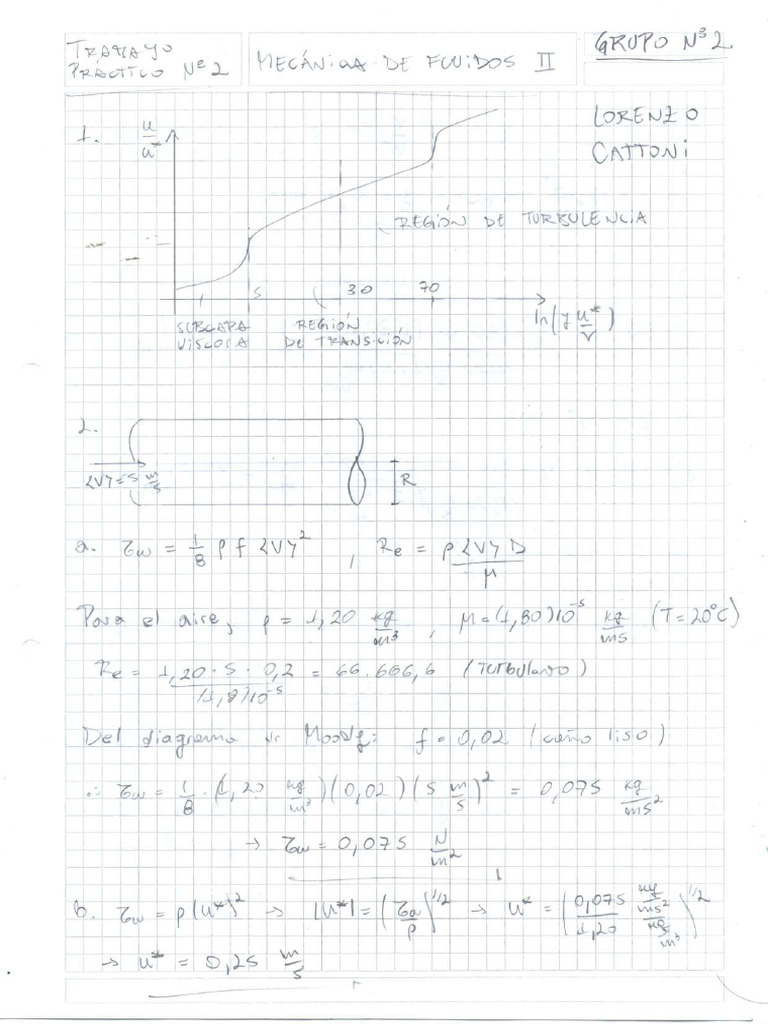 TRABAJO
PRÁCTICO Nº 2
MECÁNICA DE FLUIDOS II
GRUPO Nº 2
LORENZO
CATTONI
1.
u/u*
REGIÓN DE TURBULENCIA
5 30 70
ln(y u*/ν)
SUBCAPA VISCOSA
REGIÓN DE TRANSICIÓN
2.
<V> = 5 m/s
R
a. τw = 1/8 ρ f <V>² , Re = ρ<V>D/μ
Para el aire, ρ = 1,20 kg/m³ , μ = (1,80)10⁻⁵ kg/ms (T = 20°C)
Re = 1,20 · 5 · 0,2 / (1,8)10⁻⁵ = 66.666,6 (turbulento)
Del diagrama de Moody: f = 0,02 (caño liso)
∴ τw = 1/8 · (1,20 kg/m³)(0,02)(5 m/s)² = 0,075 kg/ms²
→ τw = 0,075 N/m²
b. τw = ρ(u*)² → |u*| = (τw/ρ)^1/2 → u* = (0,075 kg/ms² / 1,20 kg/m³)^1/2
→ u* = 0,25 m/s